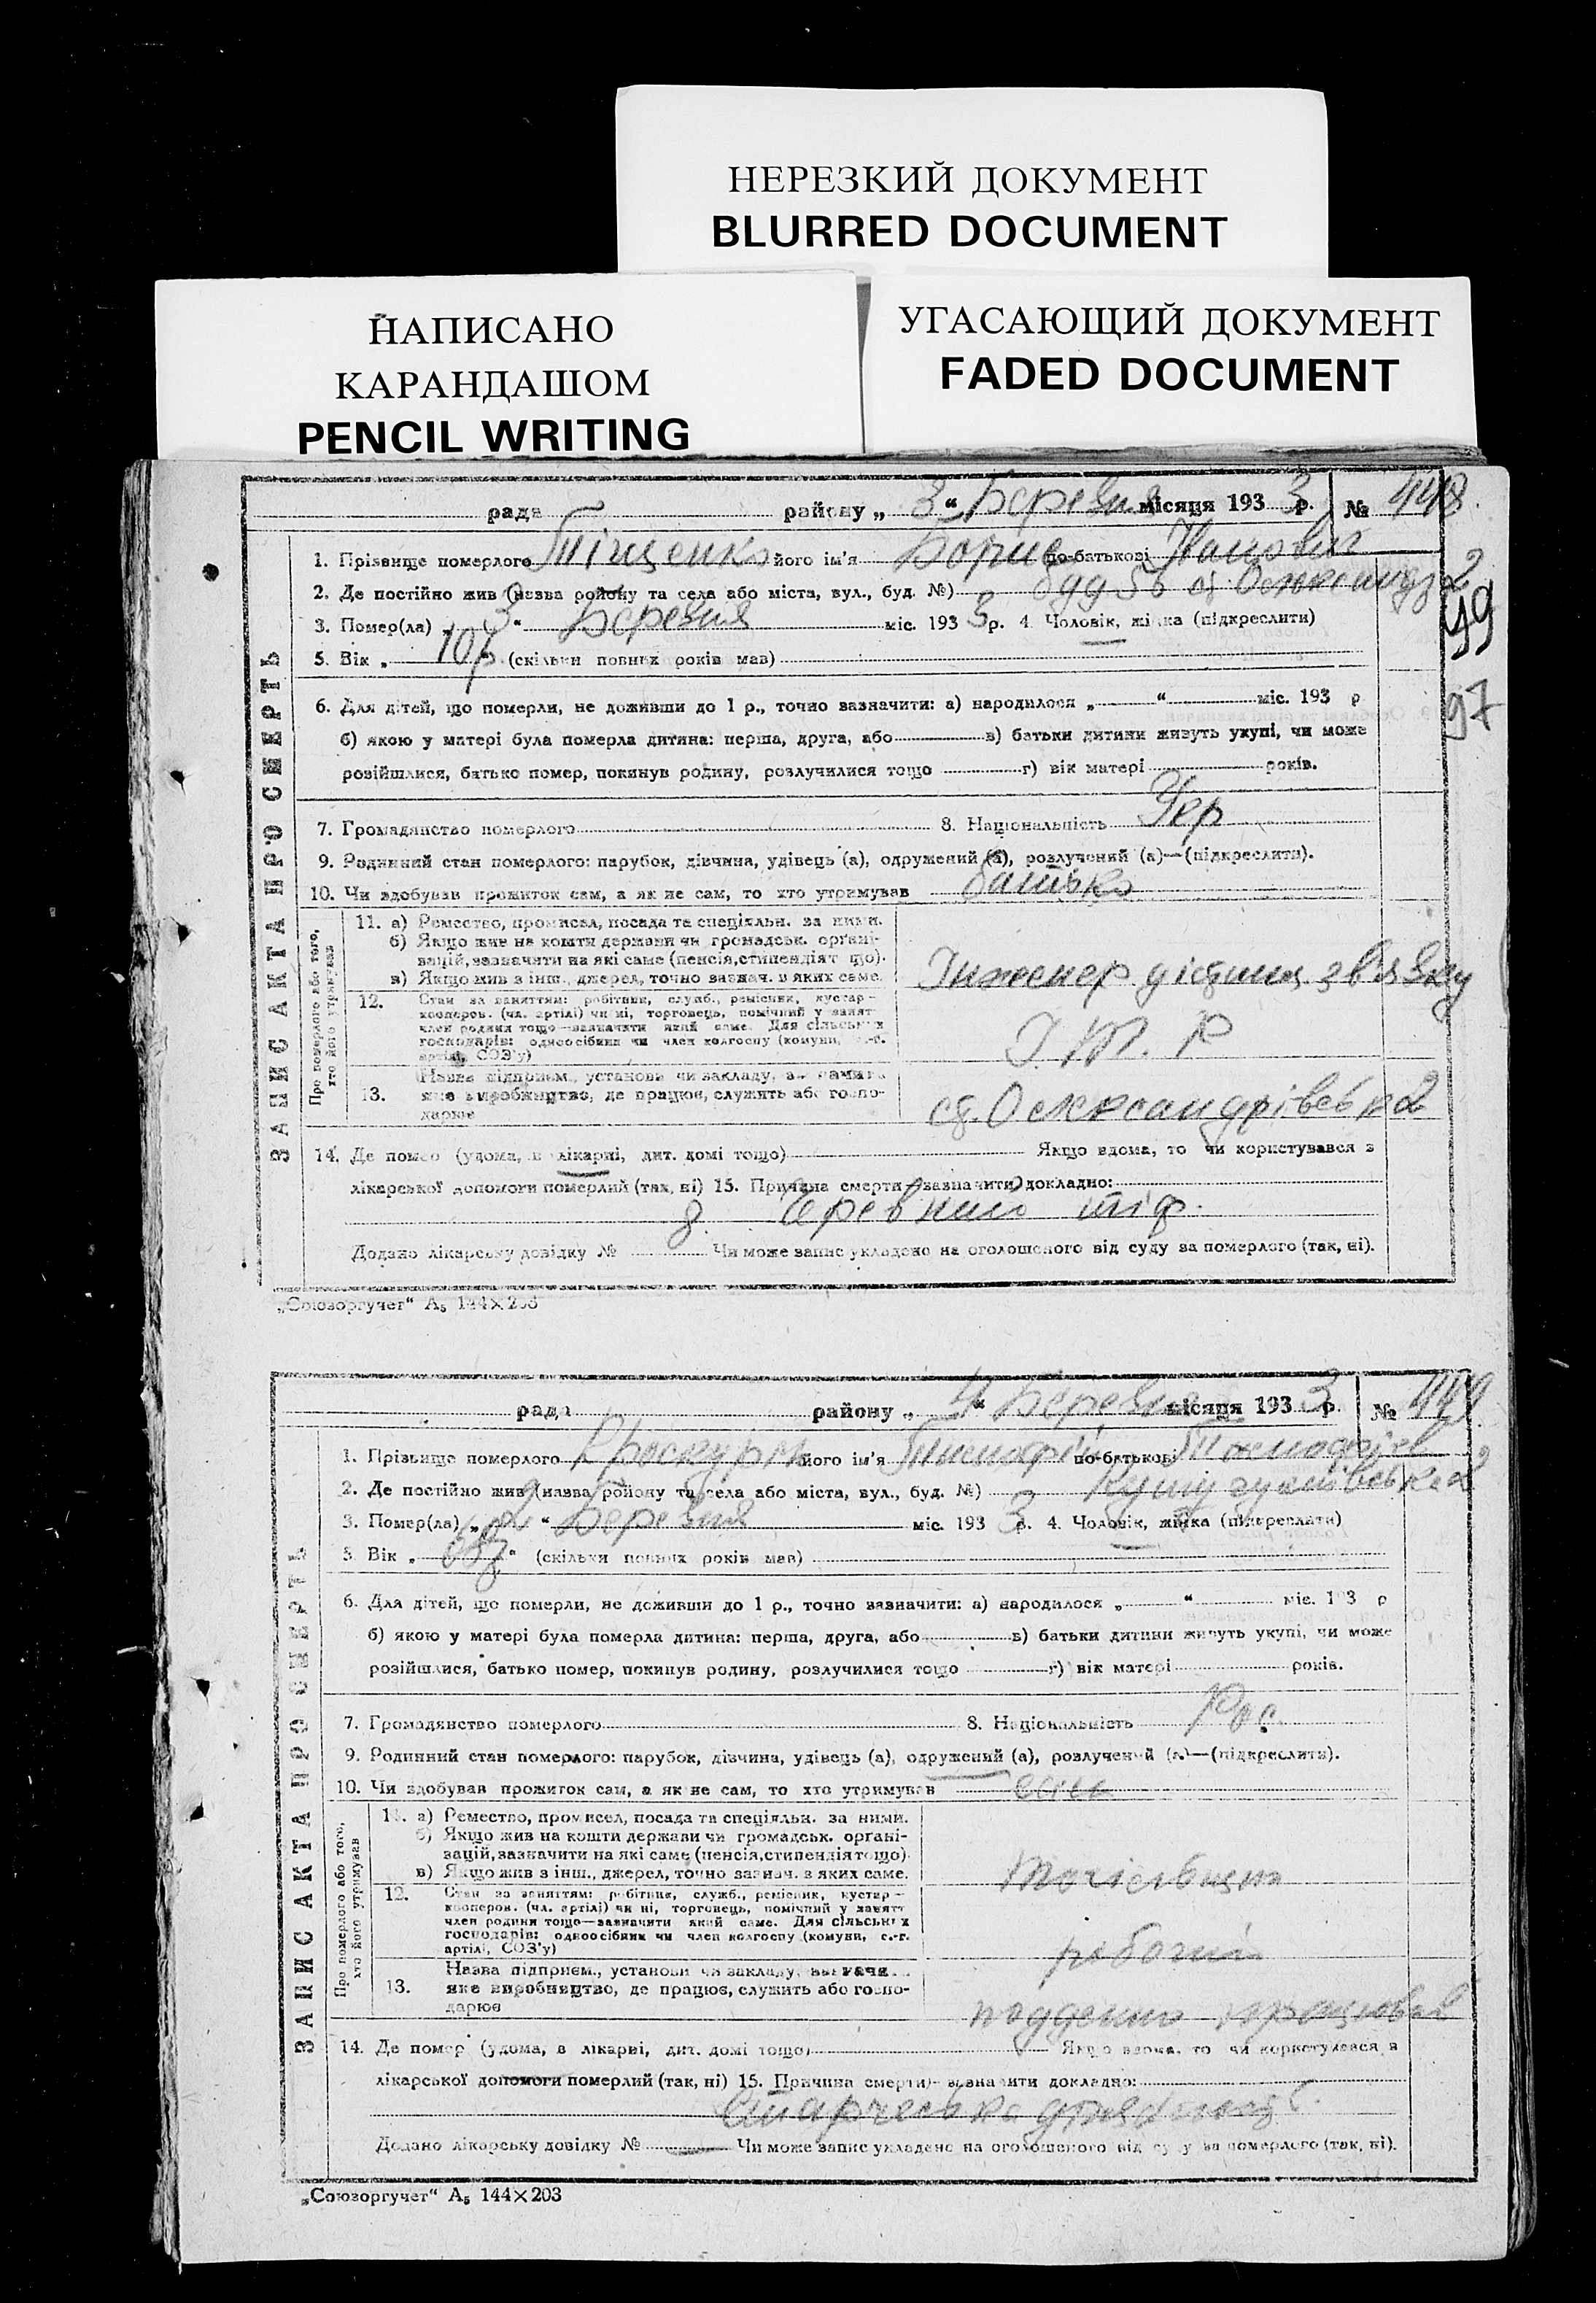 НЕРЕЗКИЙ ДОКУМЕНТ
BLURRED DOCUMENT
НАПИСАНО
КАРАНДАШОМ
PENCIL WRITING
УГАСАЮЩИЙ ДОКУМЕНТ
FADED DOCUMENT
ЗАПИС АКТА ПРО СМЕРТЬ
рада району „ 3 “ Березня місяця 193 3 р. № 448
1. Прізвище померлого Тіщенко його ім'я Борис по-батькові
2. Де постійно жив (назва району та села або міста, вул., буд. №) буд 56
99
3. Помер(ла) „ 3 “ Березня міс. 193 3 р. 4. Чоловік, жінка (підкреслити)
5. Вік „ 10 р. (скільки повних років мав)
97
6. Для дітей, що померли, не доживши до 1 р., точно зазначити: а) народилося „ “ міс. 193 р
б) якою у матері була померла дитина: перша, друга, або в) батьки дитини живуть укупі, чи може
розійшлися, батько помер, покинув родину, розлучилися тощо г) вік матері років.
7. Громадянство померлого 8. Національність Укр
9. Родинний стан померлого: парубок, дівчина, удівець (а), одружений (а), розлучений (а)—(підкреслити).
10. Чи здобував прожиток сам, а як не сам, то хто утримував батько
Про померлого або того, хто його утримував
11. а) Ремество, промисел, посада та спеціяльн. за ними.
б) Якщо жив на кошти держави чи громадськ. органі-
зацій, зазначити на які саме (пенсія, стипендія тощо).
в) Якщо жив з інш., джерел, точно зазнач. з яких саме.
Інженер дістанц звязку
12. Стан за заняттям: робітник, служб., ремісник, кустар—
кооперов. (чл. артілі) чи ні, торговець, помічний у занят
член родини тощо—зазначити який саме. Для сільських
господарів: одноосібник чи член колгоспу (комуни, с.-г.
артілі, СОЗ'у)
І. Т. Р
13. Назва підприєм., установи чи закладу,
яке виробництво, де працює, служить або госпо-
дарює
ст. Олександрівськ 2
14. Де помер (удома, в лікарні, дит. домі тощо) Якщо вдома, то чи користувався з
лікарської допомоги померлий (так, ні) 15. Причина смерти—зазначити докладно:
Черевний тіф.
Додано лікарську довідку № Чи може запис укладено на оголошеного від суду за померлого (так, ні).
„Союзоргучет“ А₅ 144×203
ЗАПИС АКТА ПРО СМЕРТЬ
рада району „ 4 “ Березня місяця 193 3 р. № 449
1. Прізвище померлого Проскурін його ім'я Тимофій по-батькові
2. Де постійно жив (назва району та села або міста, вул., буд. №)
3. Помер(ла) „ “ Березня міс. 193 3 р. 4. Чоловік, жінка (підкреслити)
5 Вік „ “ (скільки повних років мав)
6. Для дітей, що померли, не доживши до 1 р., точно зазначити: а) народилося „ “ міс. 193 р
б) якою у матері була померла дитина: перша, друга, або в) батьки дитини живуть укупі, чи може
розійшлися, батько помер, покинув родину, розлучилися тощо г) вік матері років.
7. Громадянство померлого 8. Національність Рос.
9. Родинний стан померлого: парубок, дівчина, удівець (а), одружений (а), розлучений (а)—(підкреслити).
10. Чи здобував прожиток сам, а як не сам, то хто утримував сам
Про померлого або того, хто його утримував
11. а) Ремество, промисел, посада та спеціяльн. за ними.
б) Якщо жив на кошти держави чи громадськ. органі-
зацій, зазначити на які саме (пенсія, стипендія тощо)
в) Якщо жив з інш., джерел, точно зазнач. з яких саме.
точільщик
12. Стан за заняттям: робітник, служб., ремісник, кустар—
кооперов. (чл. артілі) чи ні, торговець, помічний у занятт
член родини тощо—зазначити який саме. Для сільських
господарів: одноосібник чи член колгоспу (комуни, с.-г.
артілі, СОЗ'у)
робочий
13. Назва підприєм., установи чи закладу,
яке виробництво, де працює, служить або госпо-
дарює
поденно працював
14. Де помер (удома, в лікарні, дит. домі тощо) Якщо вдома, то чи користувався з
лікарської допомоги померлий (так, ні) 15. Причина смерти—зазначити докладно:
Старческа
Додано лікарську довідку № Чи може запис укладено на оголошеного від суду за померлого (так, ні).
„Союзоргучет“ А₅ 144×203